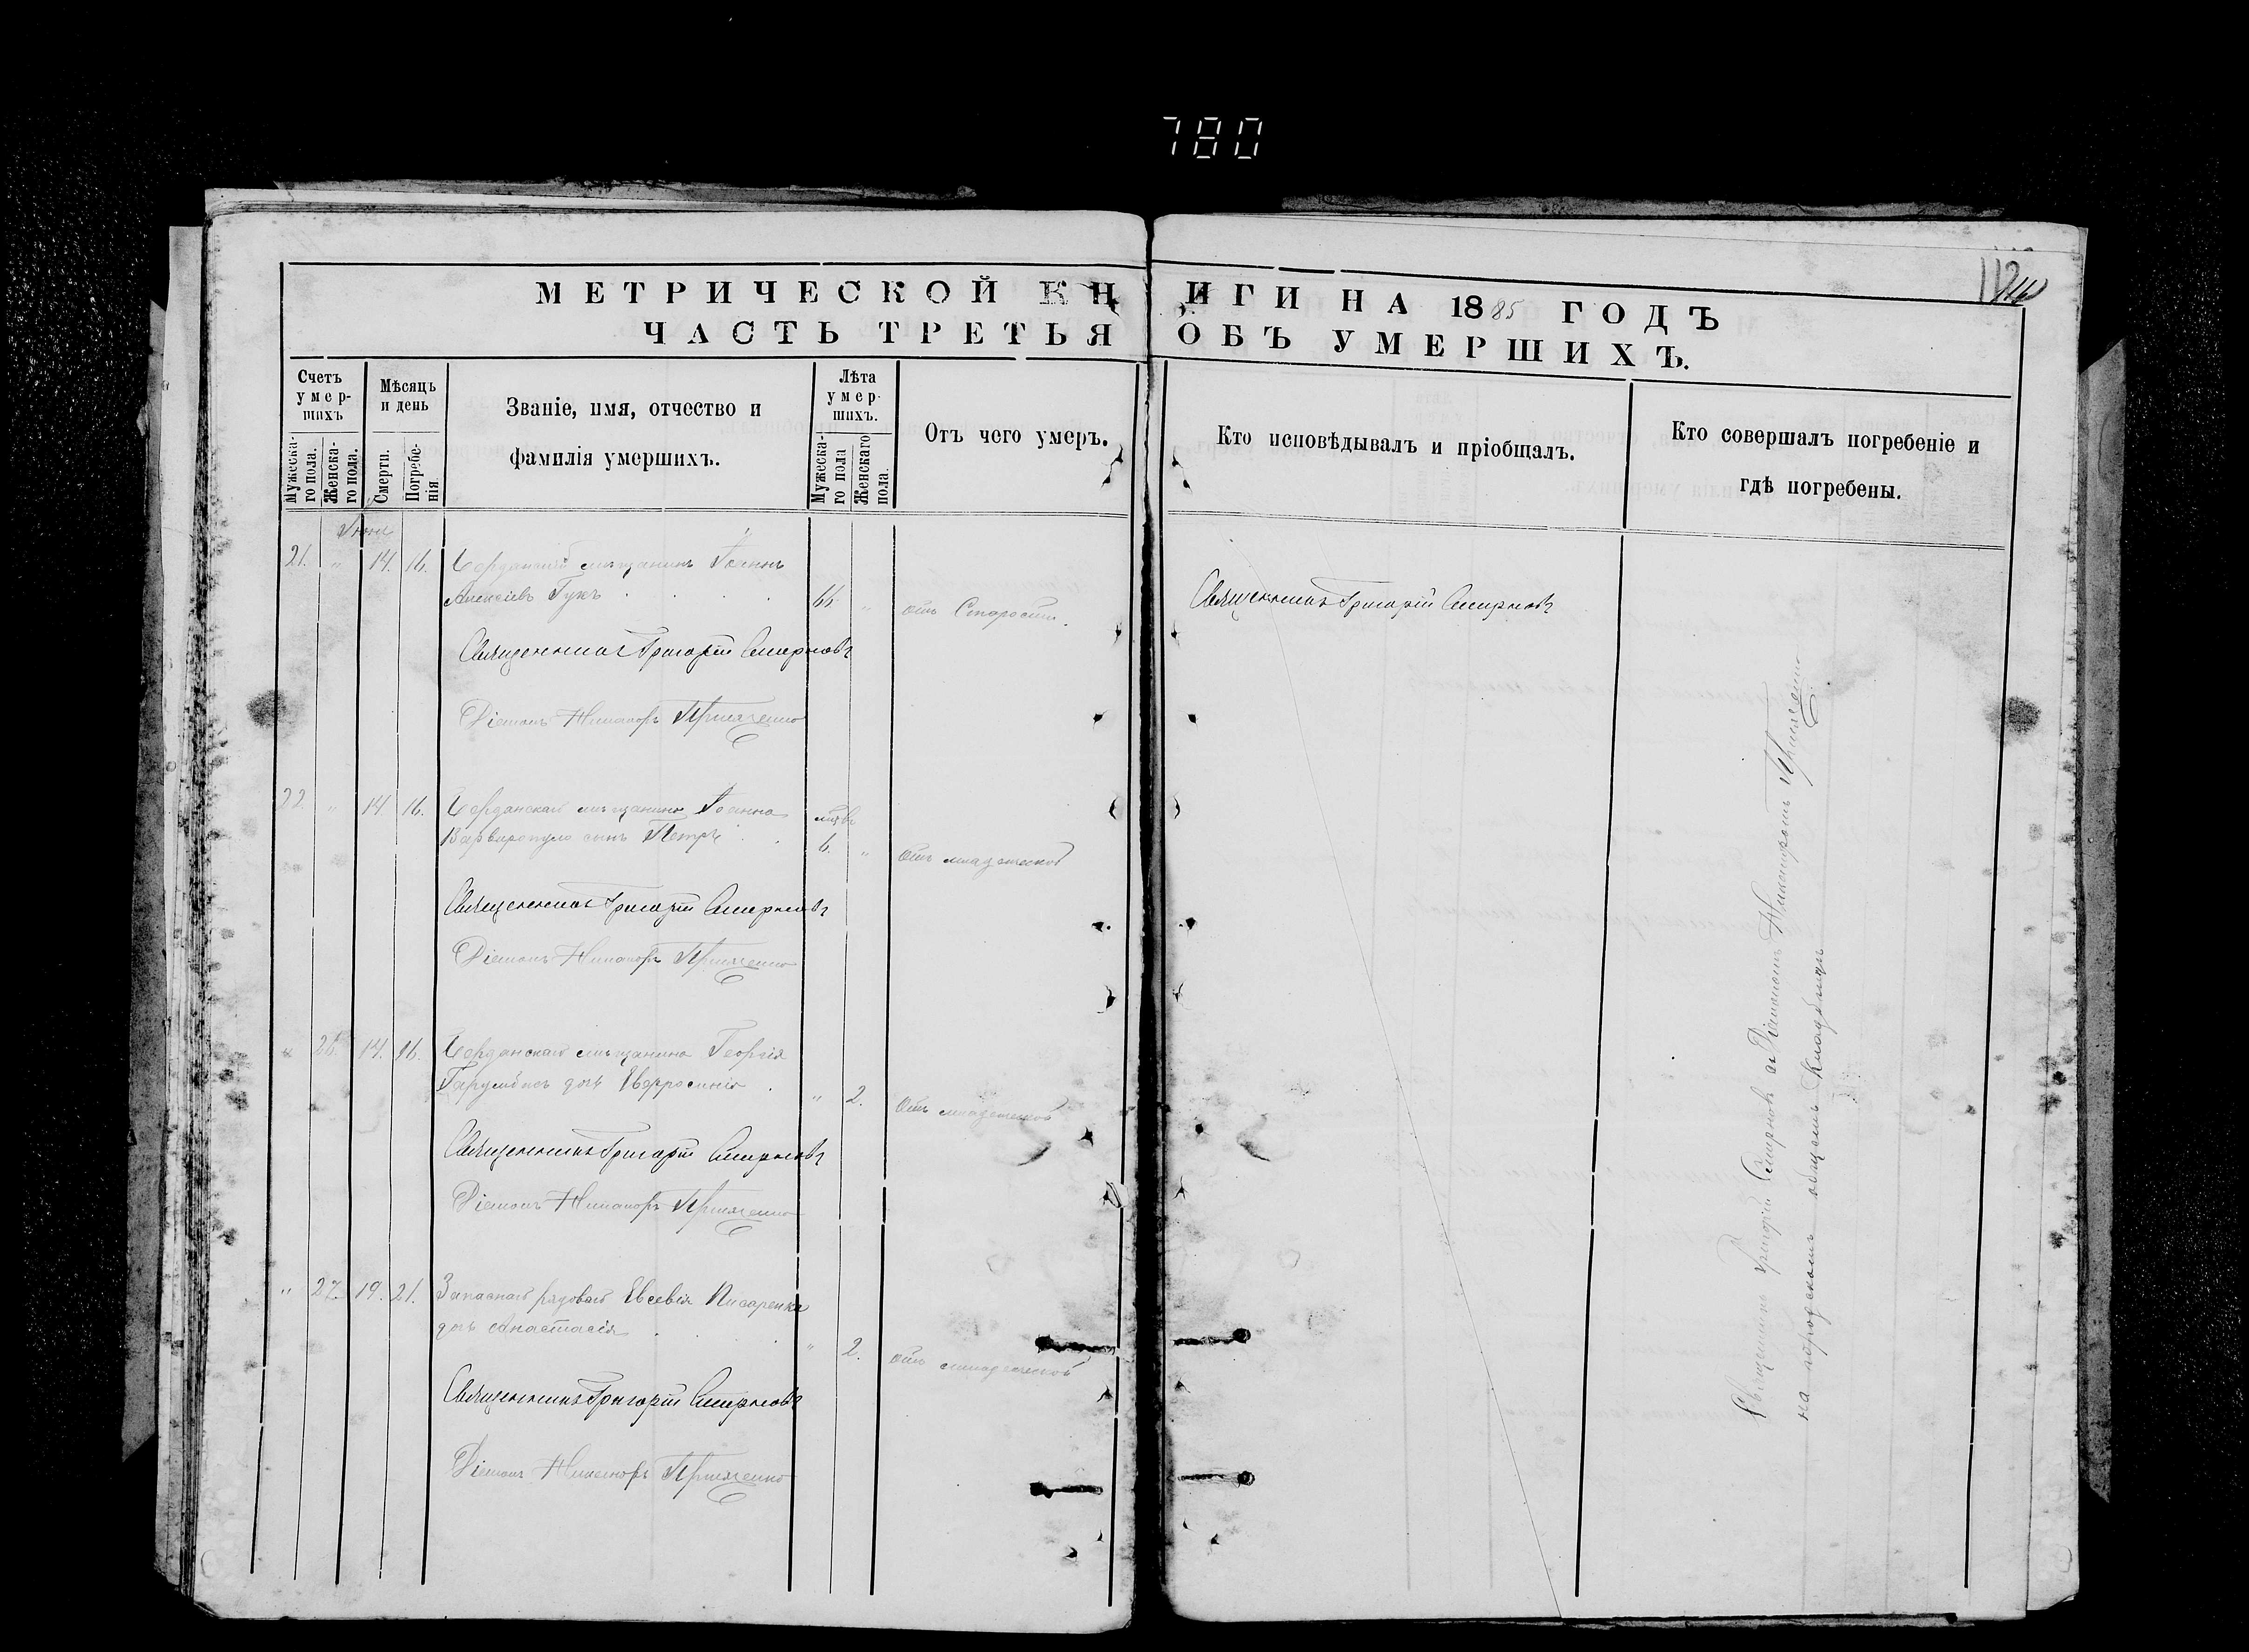 780
МЕТРИЧЕСКОЙ КНИГИ НА 1885 ГОДЪ
ЧАСТЬ ТРЕТЬЯ ОБЪ УМЕРШИХЪ.
Счетъ умер-шихъ
Мужеска-го пола.
Женска-го пола.
Мѣсяцъ и день
Смерти.
Погребе-нія.
Званіе, имя, отчество и
фамилія умершихъ.
Лѣта умер-шихъ.
Мужеска-го пола
Женскаго пола.
Отъ чего умеръ.
Кто исповѣдывалъ и пріобщалъ.
Кто совершалъ погребеніе и
гдѣ погребены.
Іюня
21. " 14. 16. мѣщанинъ Іоаннъ
Алексіевъ Гукъ 66 " отъ Старости.
Священникъ Григорій Смирновъ
Священникъ Григорій Смирновъ
Діаконъ Никаноръ
22 " 14 16. мѣщанина Іоанна
Варваропуло сынъ Петръ 6. " отъ младенческой
Священникъ Григорій Смирновъ
Діаконъ Никаноръ
" 26. 14. 16. мѣщанина Георгія
дочь Евфросинія " 2. отъ младенческой
Священникъ Григорій Смирновъ
Діаконъ Никаноръ
" 27. 19. 21. Запаснаго рядоваго Евсевія Писаренка
дочь Анастасія " 2. отъ младенческой
Священникъ Григорій Смирновъ
Діаконъ Никаноръ
Священникъ Григорій Смирновъ съ Діакономъ Никаноромъ
на городскомъ общемъ кладбищѣ